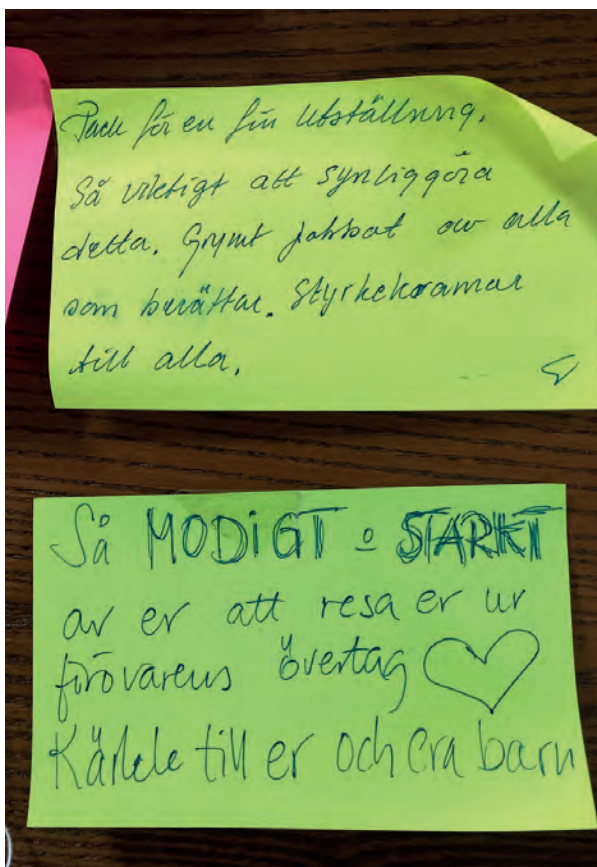 Tack för en fin utställning.
Så viktigt att synliggöra
detta. Grymt jobbat av alla
som berättar. Styrkekramar
till alla.
Så MODIGT o STARKT
av er att resa er ur
förövarens övertag
Kärlek till er och era barn